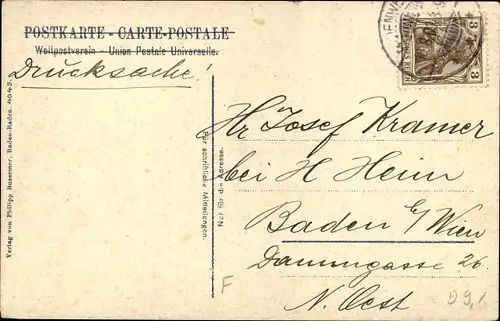 POSTKARTE - CARTE-POSTALE
Weltpostverein - Union Postale Universelle.
Drucksache!
Verlag von Philipp Bussemer, Baden-Baden. 4043.
Für schriftliche Mitteilungen.
Nur für die Adresse.
3 3
Hr Josef Kramer
bei H Heim
Baden b/ Wien
Dammgasse 26
N. Oest
F
D 9,1